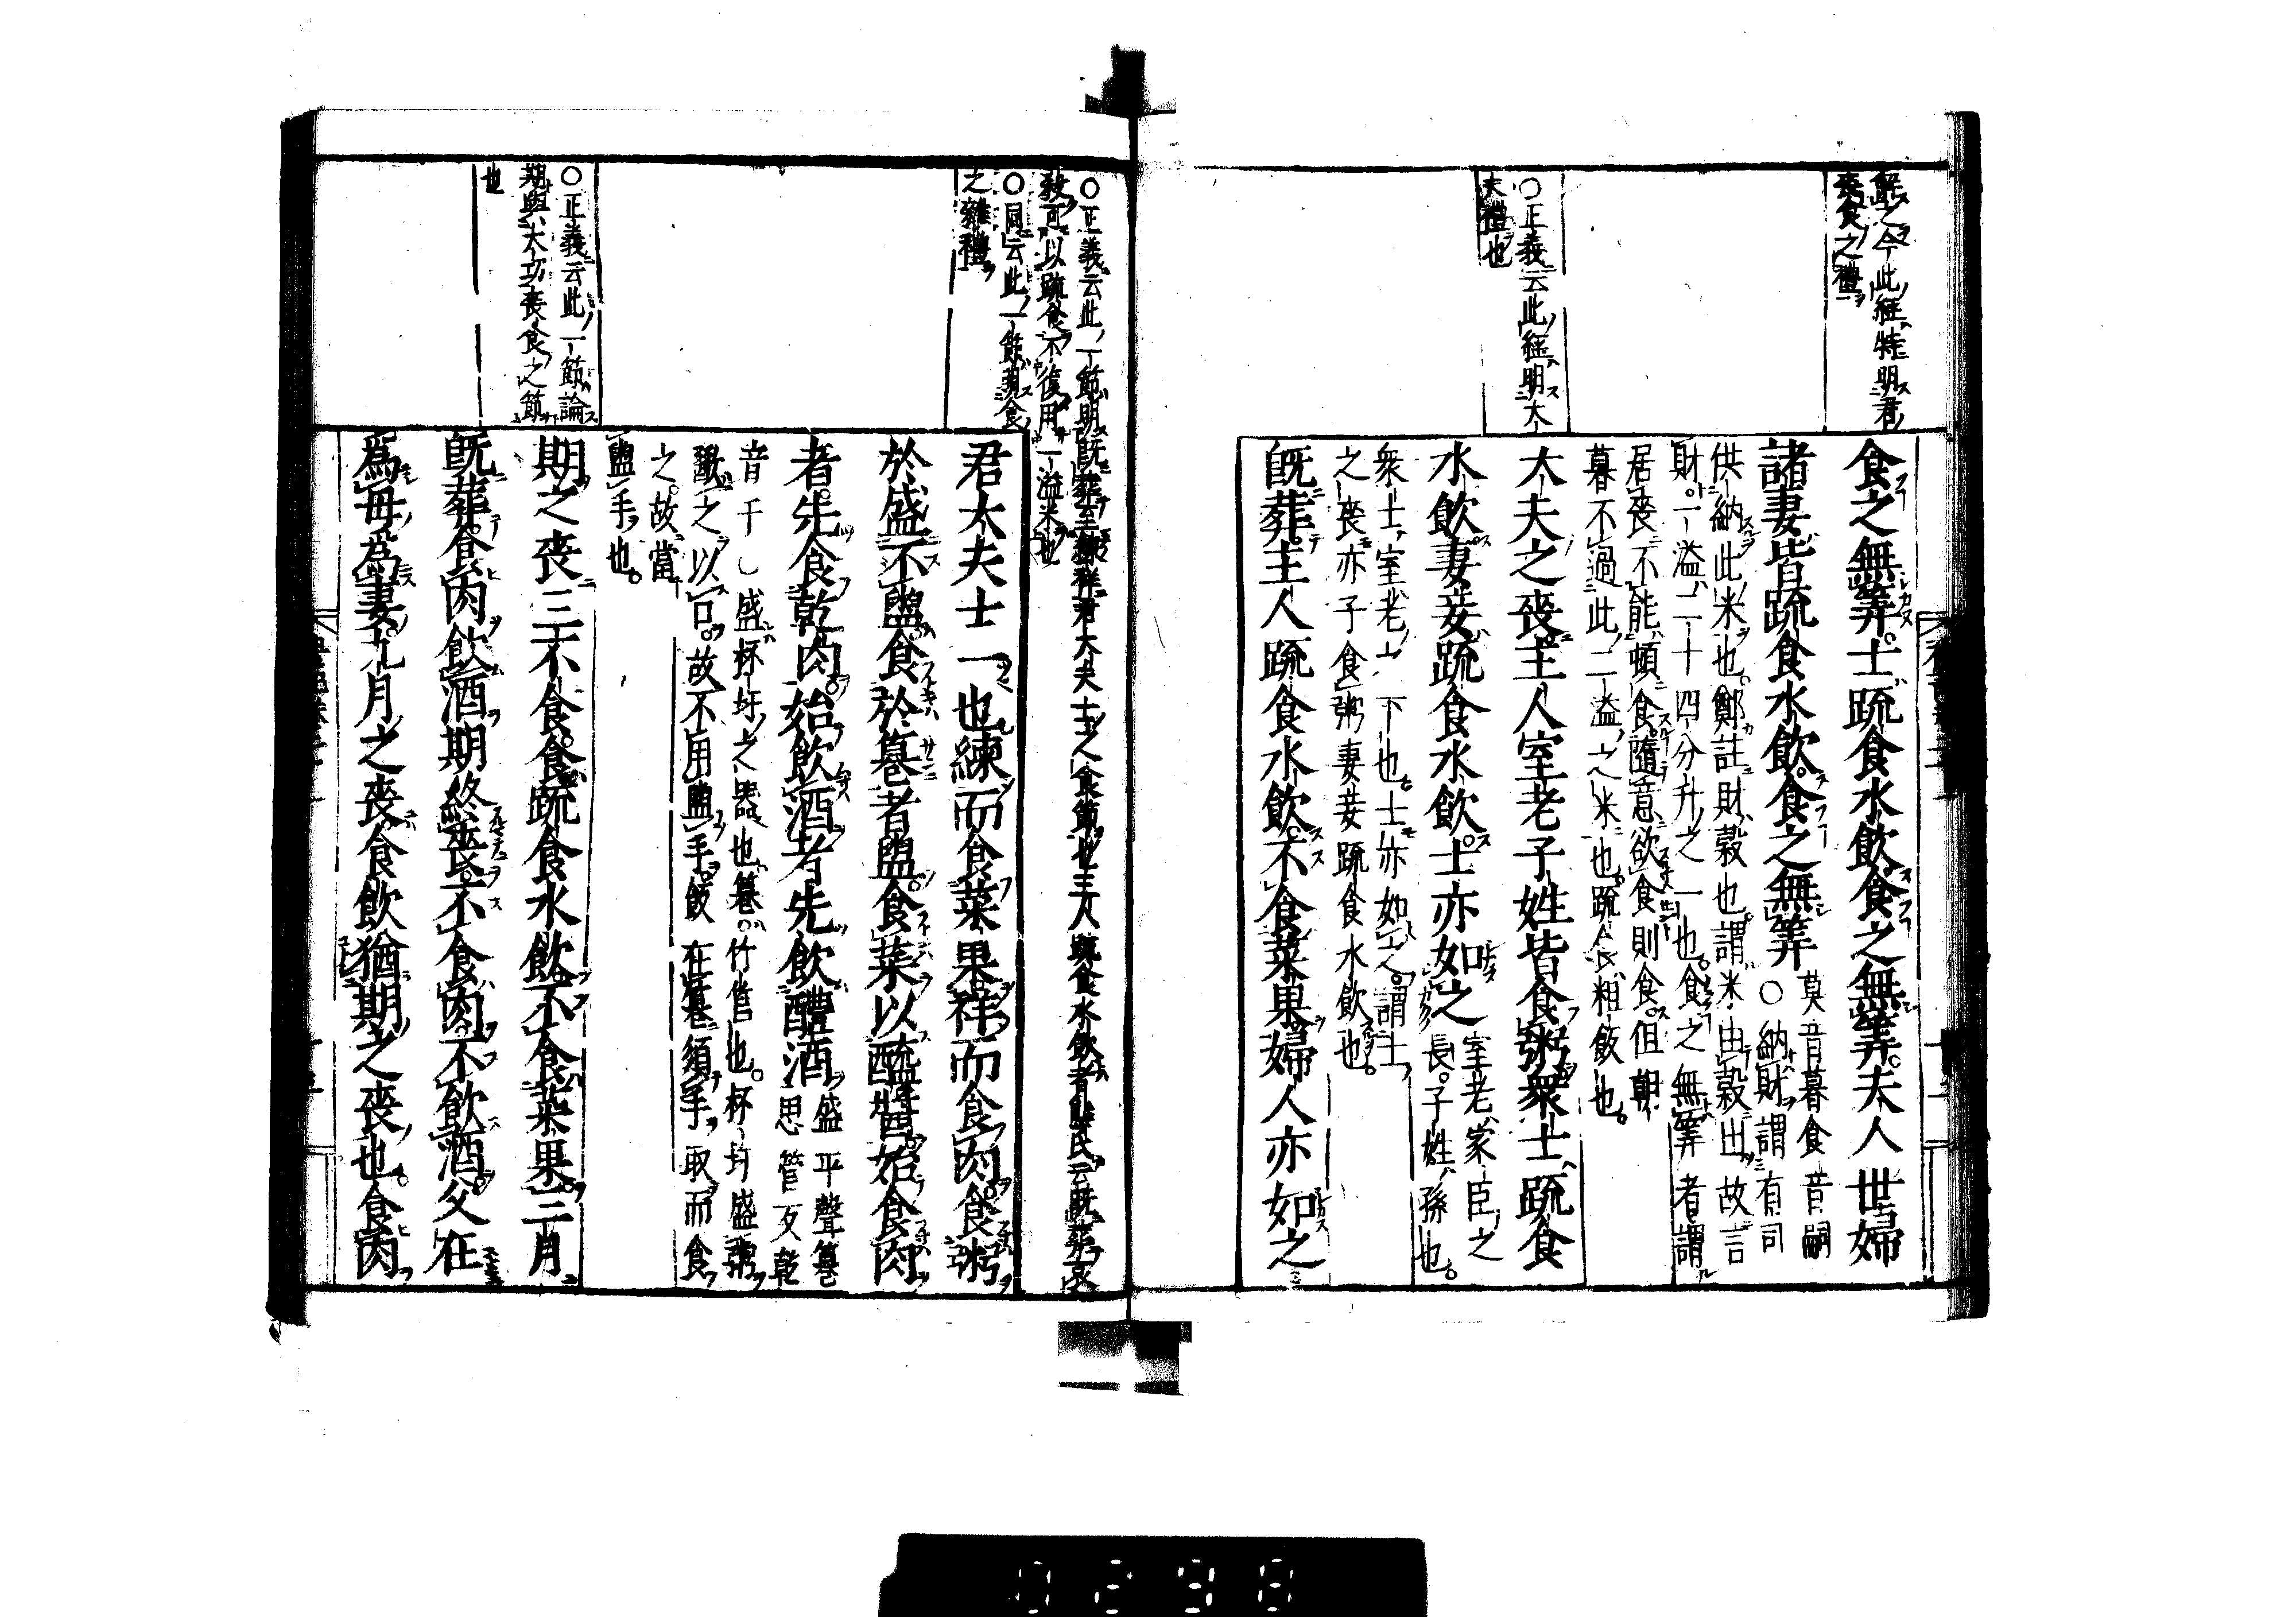 解之今此經特明君
喪食之禮
○正義云此經明大
夫禮也
食之無筭。士疏食水飲食之無筭。夫人世婦
諸妻皆疏食水飲。食之無筭
莫音暮食音嗣
○納財謂有司
供納此米也。鄭註財穀也。謂米由穀出故言
財。一溢二十四分升之一也。食之無筭者謂
居喪不能頓食。隨意欲食則食。但朝
暮不過此二溢之米也。疏食粗飯也。
大夫之喪。主人室老子姓皆食粥。衆士疏食
水飲。妻妾疏食水飲。士亦如之
室老家臣之
長。子姓孫也。
衆士室老之下也。士亦如之。謂士
之喪亦子食粥妻妾疏食水飲也。
既葬。主人疏食水飲。不食菜果。婦人亦如之
○正義云此一節明既葬至練祥君大夫士之食節也主人既食水飲者熊氏云既葬哀
殺可以疏食不復用一溢米也
○同云此一節明食
之雜禮
○正義云此一節論
期與大功喪食之節
也
君大夫士一也練而食菜果。祥而食肉。食粥
於盛不盥。食於篹者盥。食菜以醯醬。始食肉
者。先食乾肉。始飲酒者先飲醴酒
盛平聲篹
思管反乾
音干○盛杯圬之器也。篹。竹筥也。杯圬盛粥。
歠之以口。故不用盥手。飯在篹須手取而食
之。故當
盥手也。
期之喪三不食。食疏食水飲。不食菜果。三月
既葬。食肉飲酒。期終喪。不食肉。不飲酒。父在
為母。為妻。九月之喪食飲猶期之喪也。食肉
0298